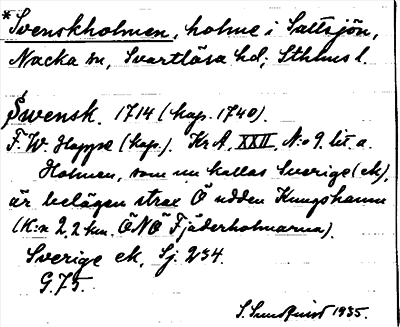 *Svenskholmen, holme i Saltsjön,
Nacka sn, Svartlösa hd, Sthlms l.
Swensk. 1714 (kop. 1740).
F. W. Hoppe (kop.). KrA, XXII, N:o 9. lit. a.
Holmen, som nu kallas Sverige (ek),
är belägen strax Ö udden Kungshamn
(K:n 2,2 km. ÖNÖ Fjäderholmarna).
Sverige ek, Sj. 234.
G. 75.
S. Sundquist 1935.